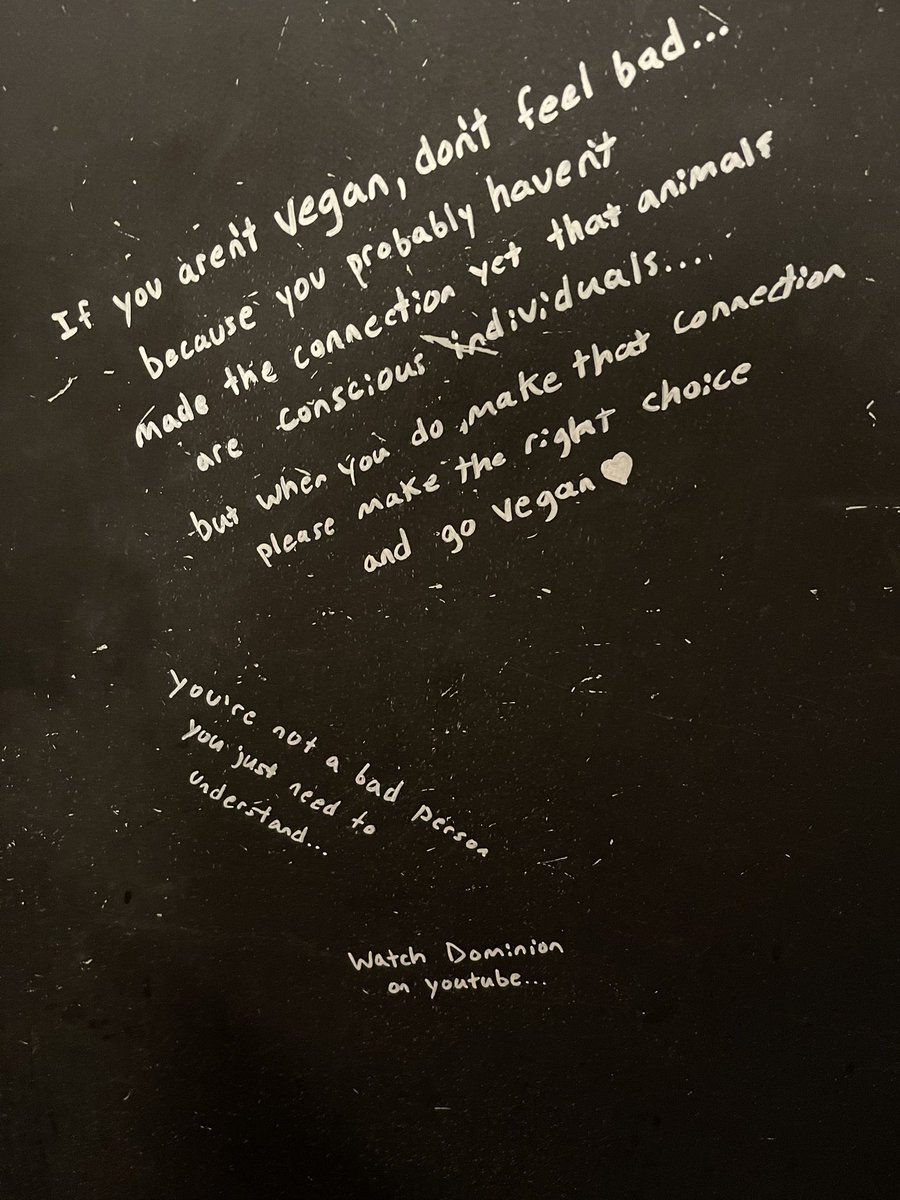 If you aren't vegan, don't feel bad...
because you probably haven't
made the connection yet that animals
are conscious individuals....
but when you do, make that connection
please make the right choice
and go vegan♥
you're not a bad person
you just need to
understand...
Watch Dominion
on youtube...